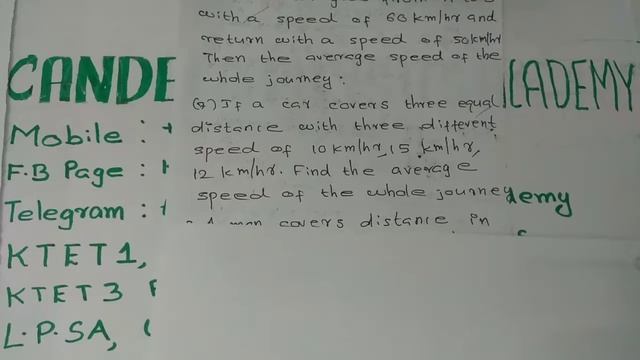 with a speed of 60 km/hr and
return with a speed of 50km/hr
Then the average speed of the
whole journey:
(Q) If a car covers three equal
distance with three different
speed of 10 km/hr, 15 km/hr,
12 km/hr. Find the average
speed of the whole journey
man covers distance in
CANDE
CADEMY
Mobile : +
F.B Page :
Telegram :
demy
KTET1,
KTET3
L.P.SA,